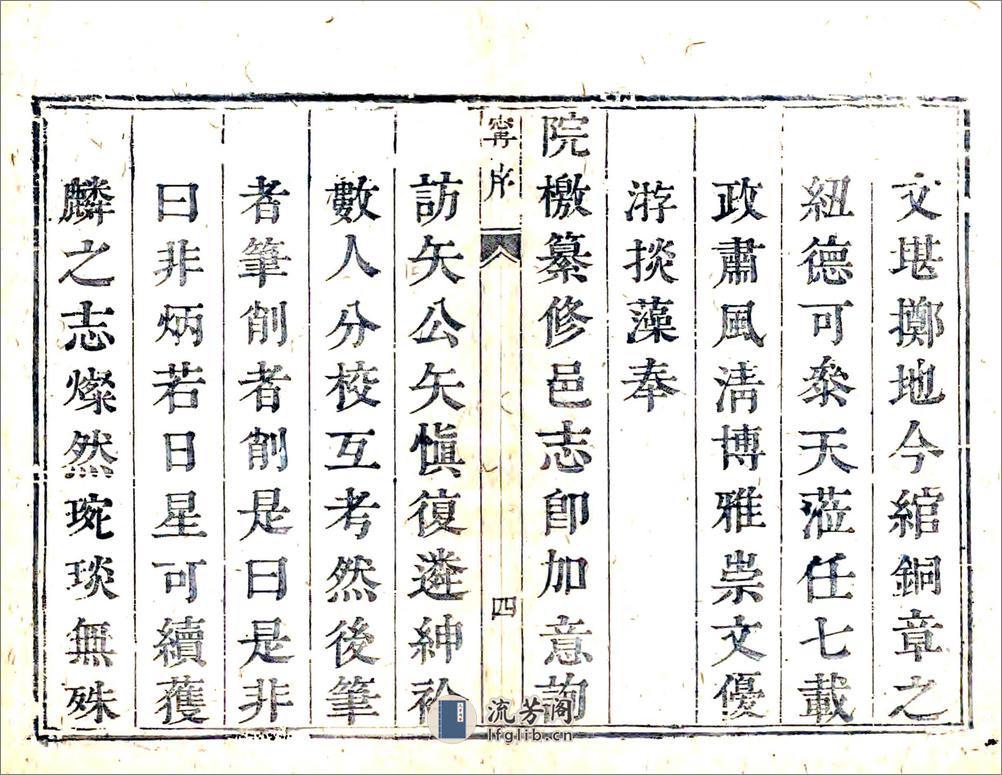 文堪擲地今綰銅章之
紐德可叅天蒞任七載
政肅風淸博雅崇文優
游掞藻奉
院檄纂修邑志卽加意詢
甯序
四
訪矢公矢愼復遴紳衿
數人分校互考然後筆
者筆削者削是曰是非
曰非炳若日星可續獲
麟之志燦然琬琰無殊
流芳阁
lfglib.cn